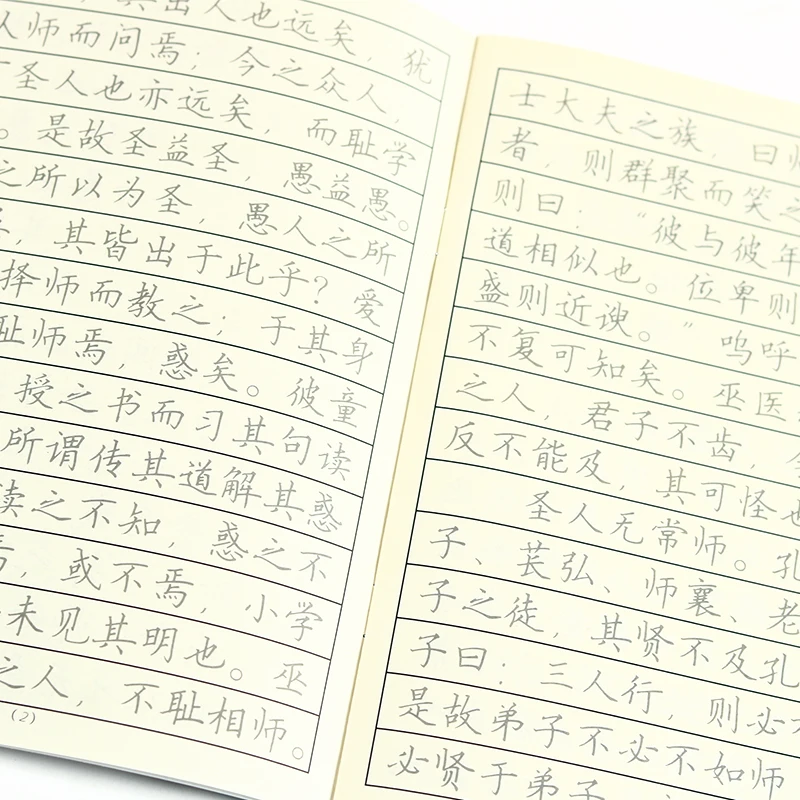 其出人也远矣，犹
从师而问焉；今之众人，
圣人也亦远矣，而耻学
。是故圣益圣，愚益愚。
之所以为圣，愚人之所
，其皆出于此乎？爱
择师而教之；于其身
耻师焉，惑矣。彼童
授之书而习其句读
所谓传其道解其惑
读之不知，惑之不
，或不焉，小学
未见其明也。巫
之人，不耻相师。
(2)
士大夫之族，曰师
者，则群聚而笑之
则曰：“彼与彼年
道相似也。位卑则
盛则近谀。”呜呼
不复可知矣。巫医
之人，君子不齿，
反不能及，其可怪也
圣人无常师。孔
子、苌弘、师襄、老
子之徒，其贤不及孔
子曰：三人行，则必
是故弟子不必不如师
必贤于弟子，